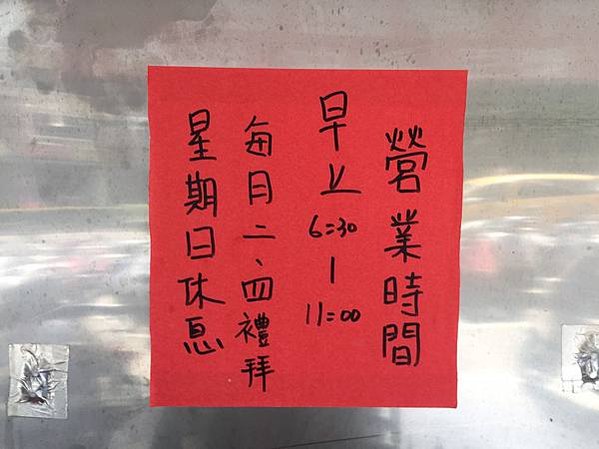 營業時間
早上 6:30 - 11:00
每月二、四禮拜
星期日休息